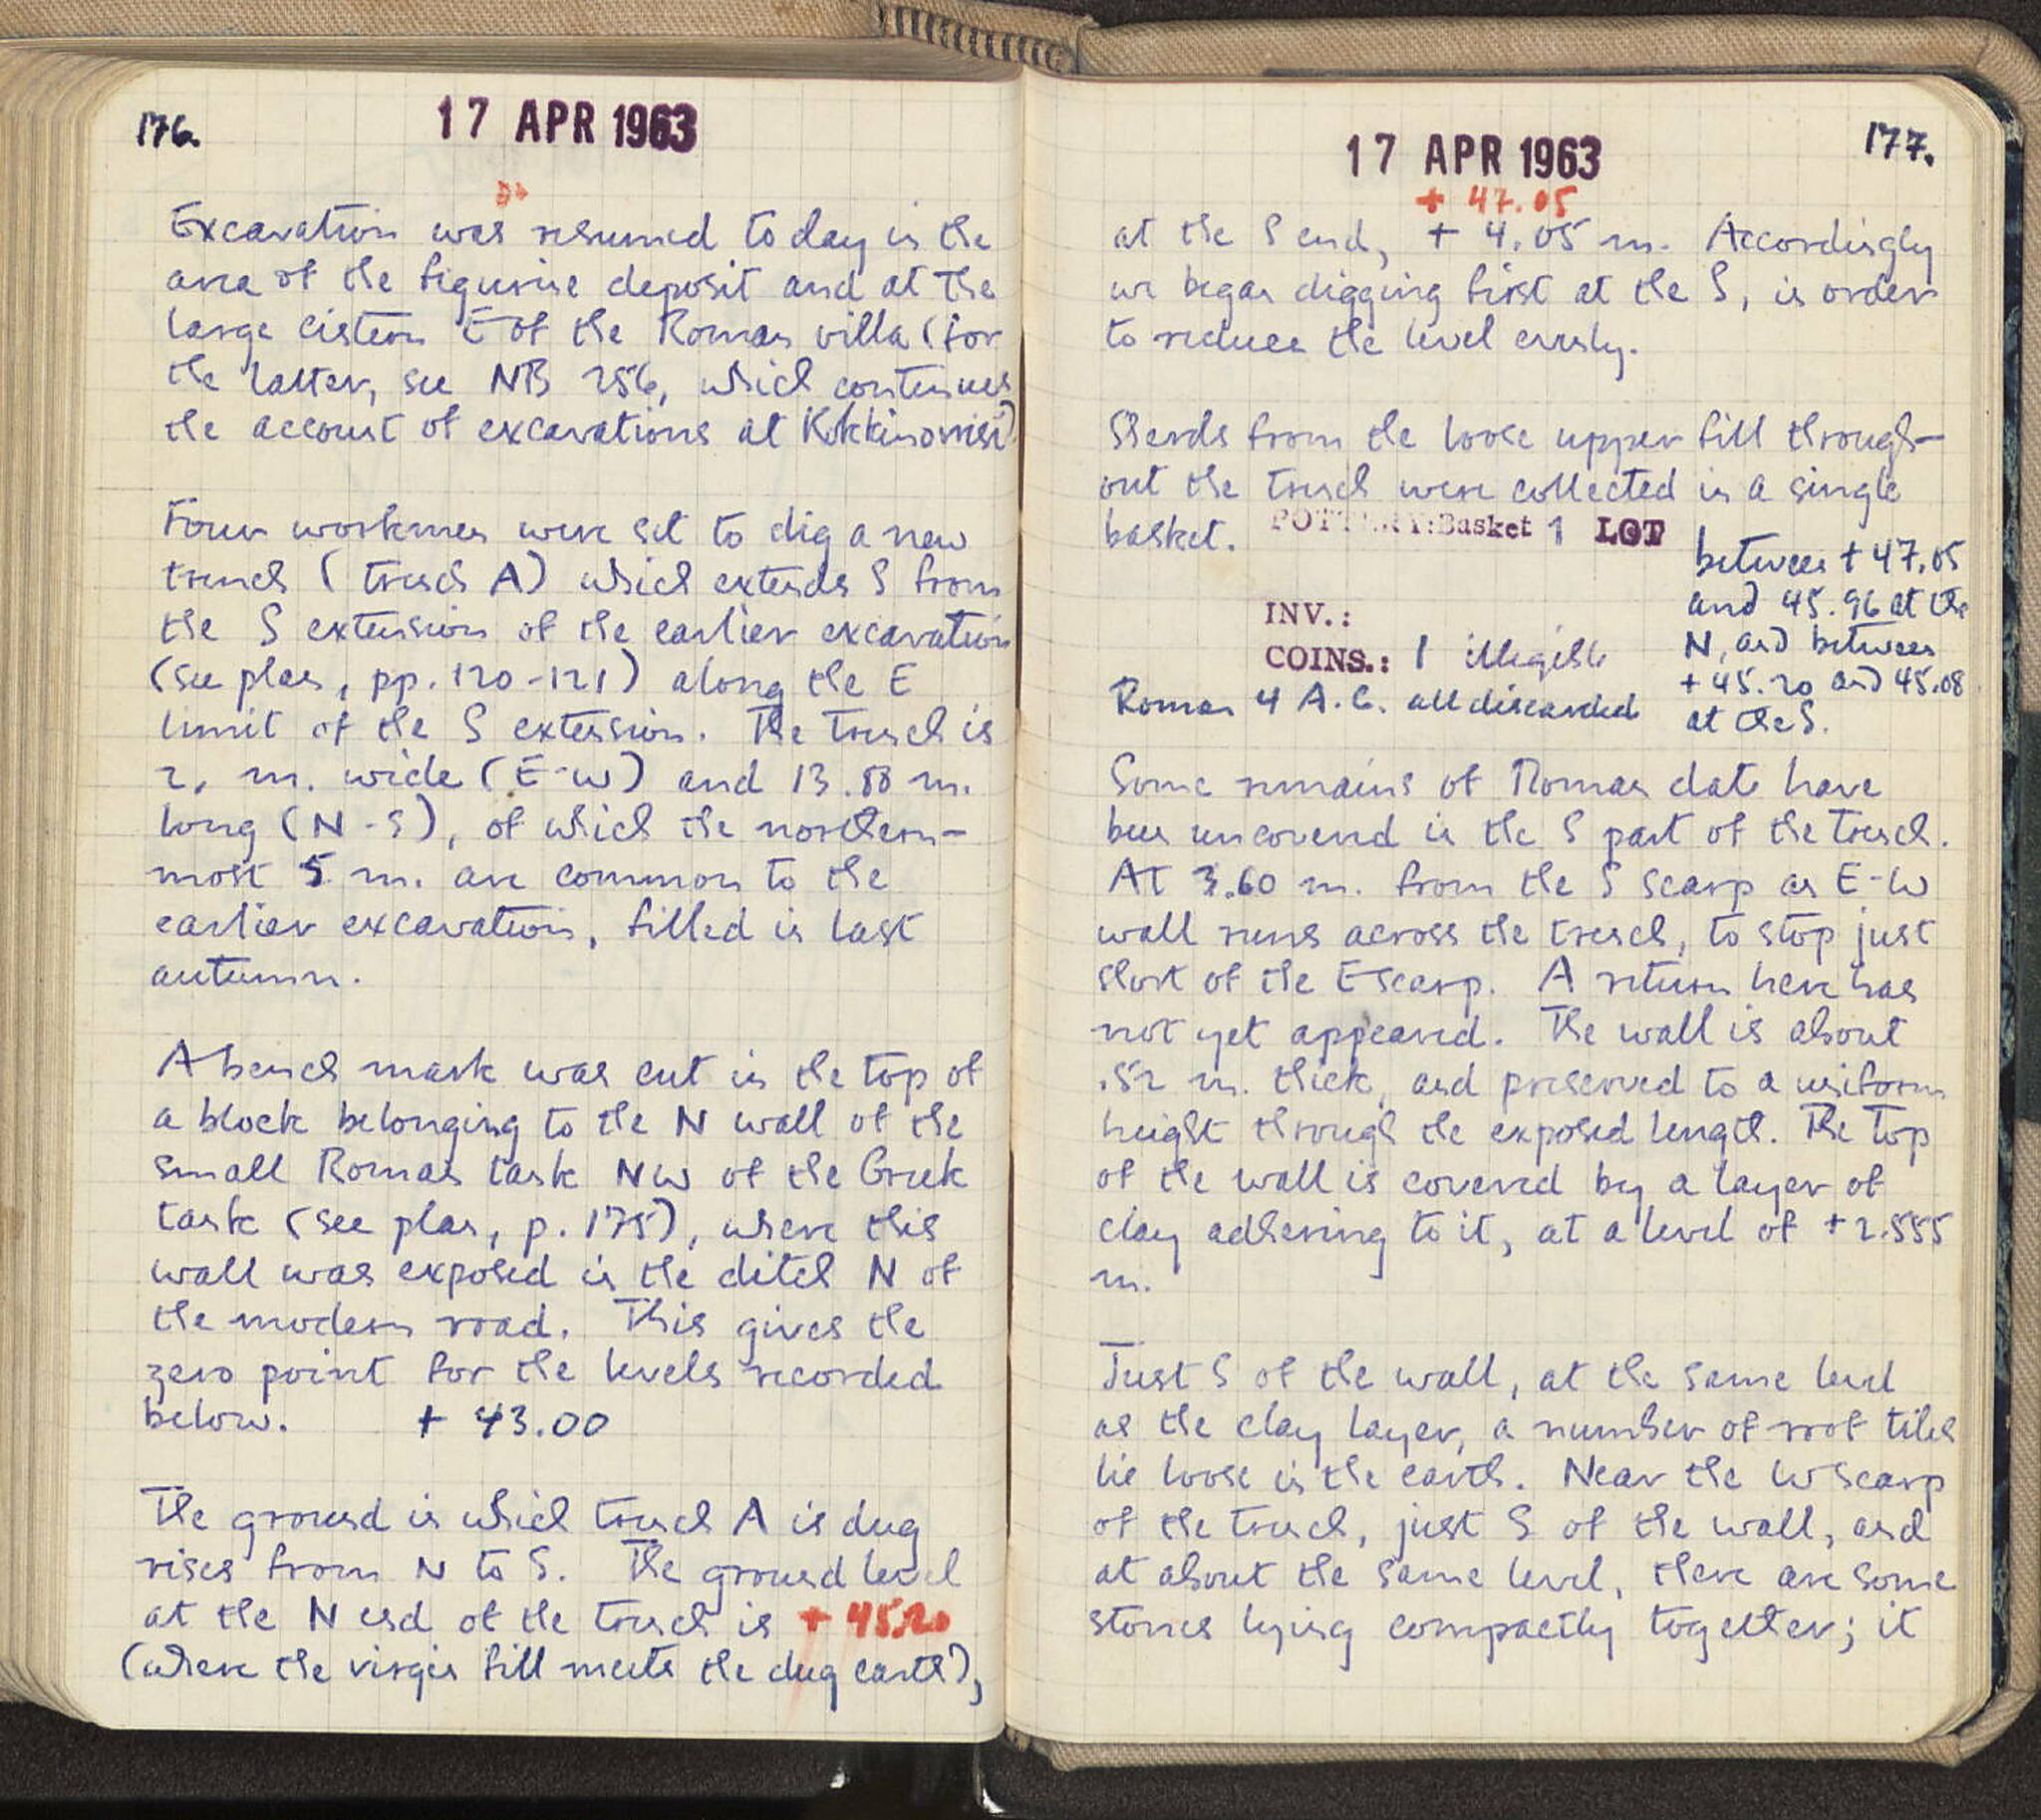 176.
17 APR 1963
Excavation was resumed today in the
area of the figurine deposit and at the
large cistern E of the Roman villa (for
the latter, see NB 256, which continues
the account of excavations at Kokkinovrisi)
Four workmen were set to dig a new
trench (trench A) which extends S from
the S extension of the earlier excavation
(see plan, pp. 120-121) along the E
limit of the S extension. The trench is
2. m. wide (E-W) and 13.88 m.
long (N-S), of which the northern-
most 5 m. are common to the
earlier excavation, filled in last
autumn.
A bench mark was cut in the top of
a block belonging to the N wall of the
small Roman tank NW of the Greek
tank (see plan, p. 175), where this
wall was exposed in the ditch N of
the modern road. This gives the
zero point for the levels recorded
below. + 43.00
The ground in which trench A is dug
rises from N to S. The ground level
at the N end of the trench is + 45.20
(where the virgin fill meets the dug earth),
177.
17 APR 1963
+ 47.05
at the S end, + 4.05 m. Accordingly
we began digging first at the S, in order
to reduce the level evenly.
Sherds from the loose upper fill through-
out the trench were collected in a single
basket. POTTERY: Basket 1 LOT
between + 47.05
and 45.96 at the
N, and between
+ 45.20 and 45.08
at the S.
INV.:
COINS.: 1 illegible
Roman 4 A.C. all discarded
Some remains of Roman date have
been uncovered in the S part of the trench.
At 3.60 m. from the S scarp an E-W
wall runs across the trench, to stop just
short of the E scarp. A return here has
not yet appeared. The wall is about
.52 m. thick, and preserved to a uniform
height through the exposed length. The top
of the wall is covered by a layer of
clay adhering to it, at a level of + 2.555
m.
Just S of the wall, at the same level
as the clay layer, a number of roof tiles
lie loose in the earth. Near the W scarp
of the trench, just S of the wall, and
at about the same level, there are some
stones lying compactly together; it